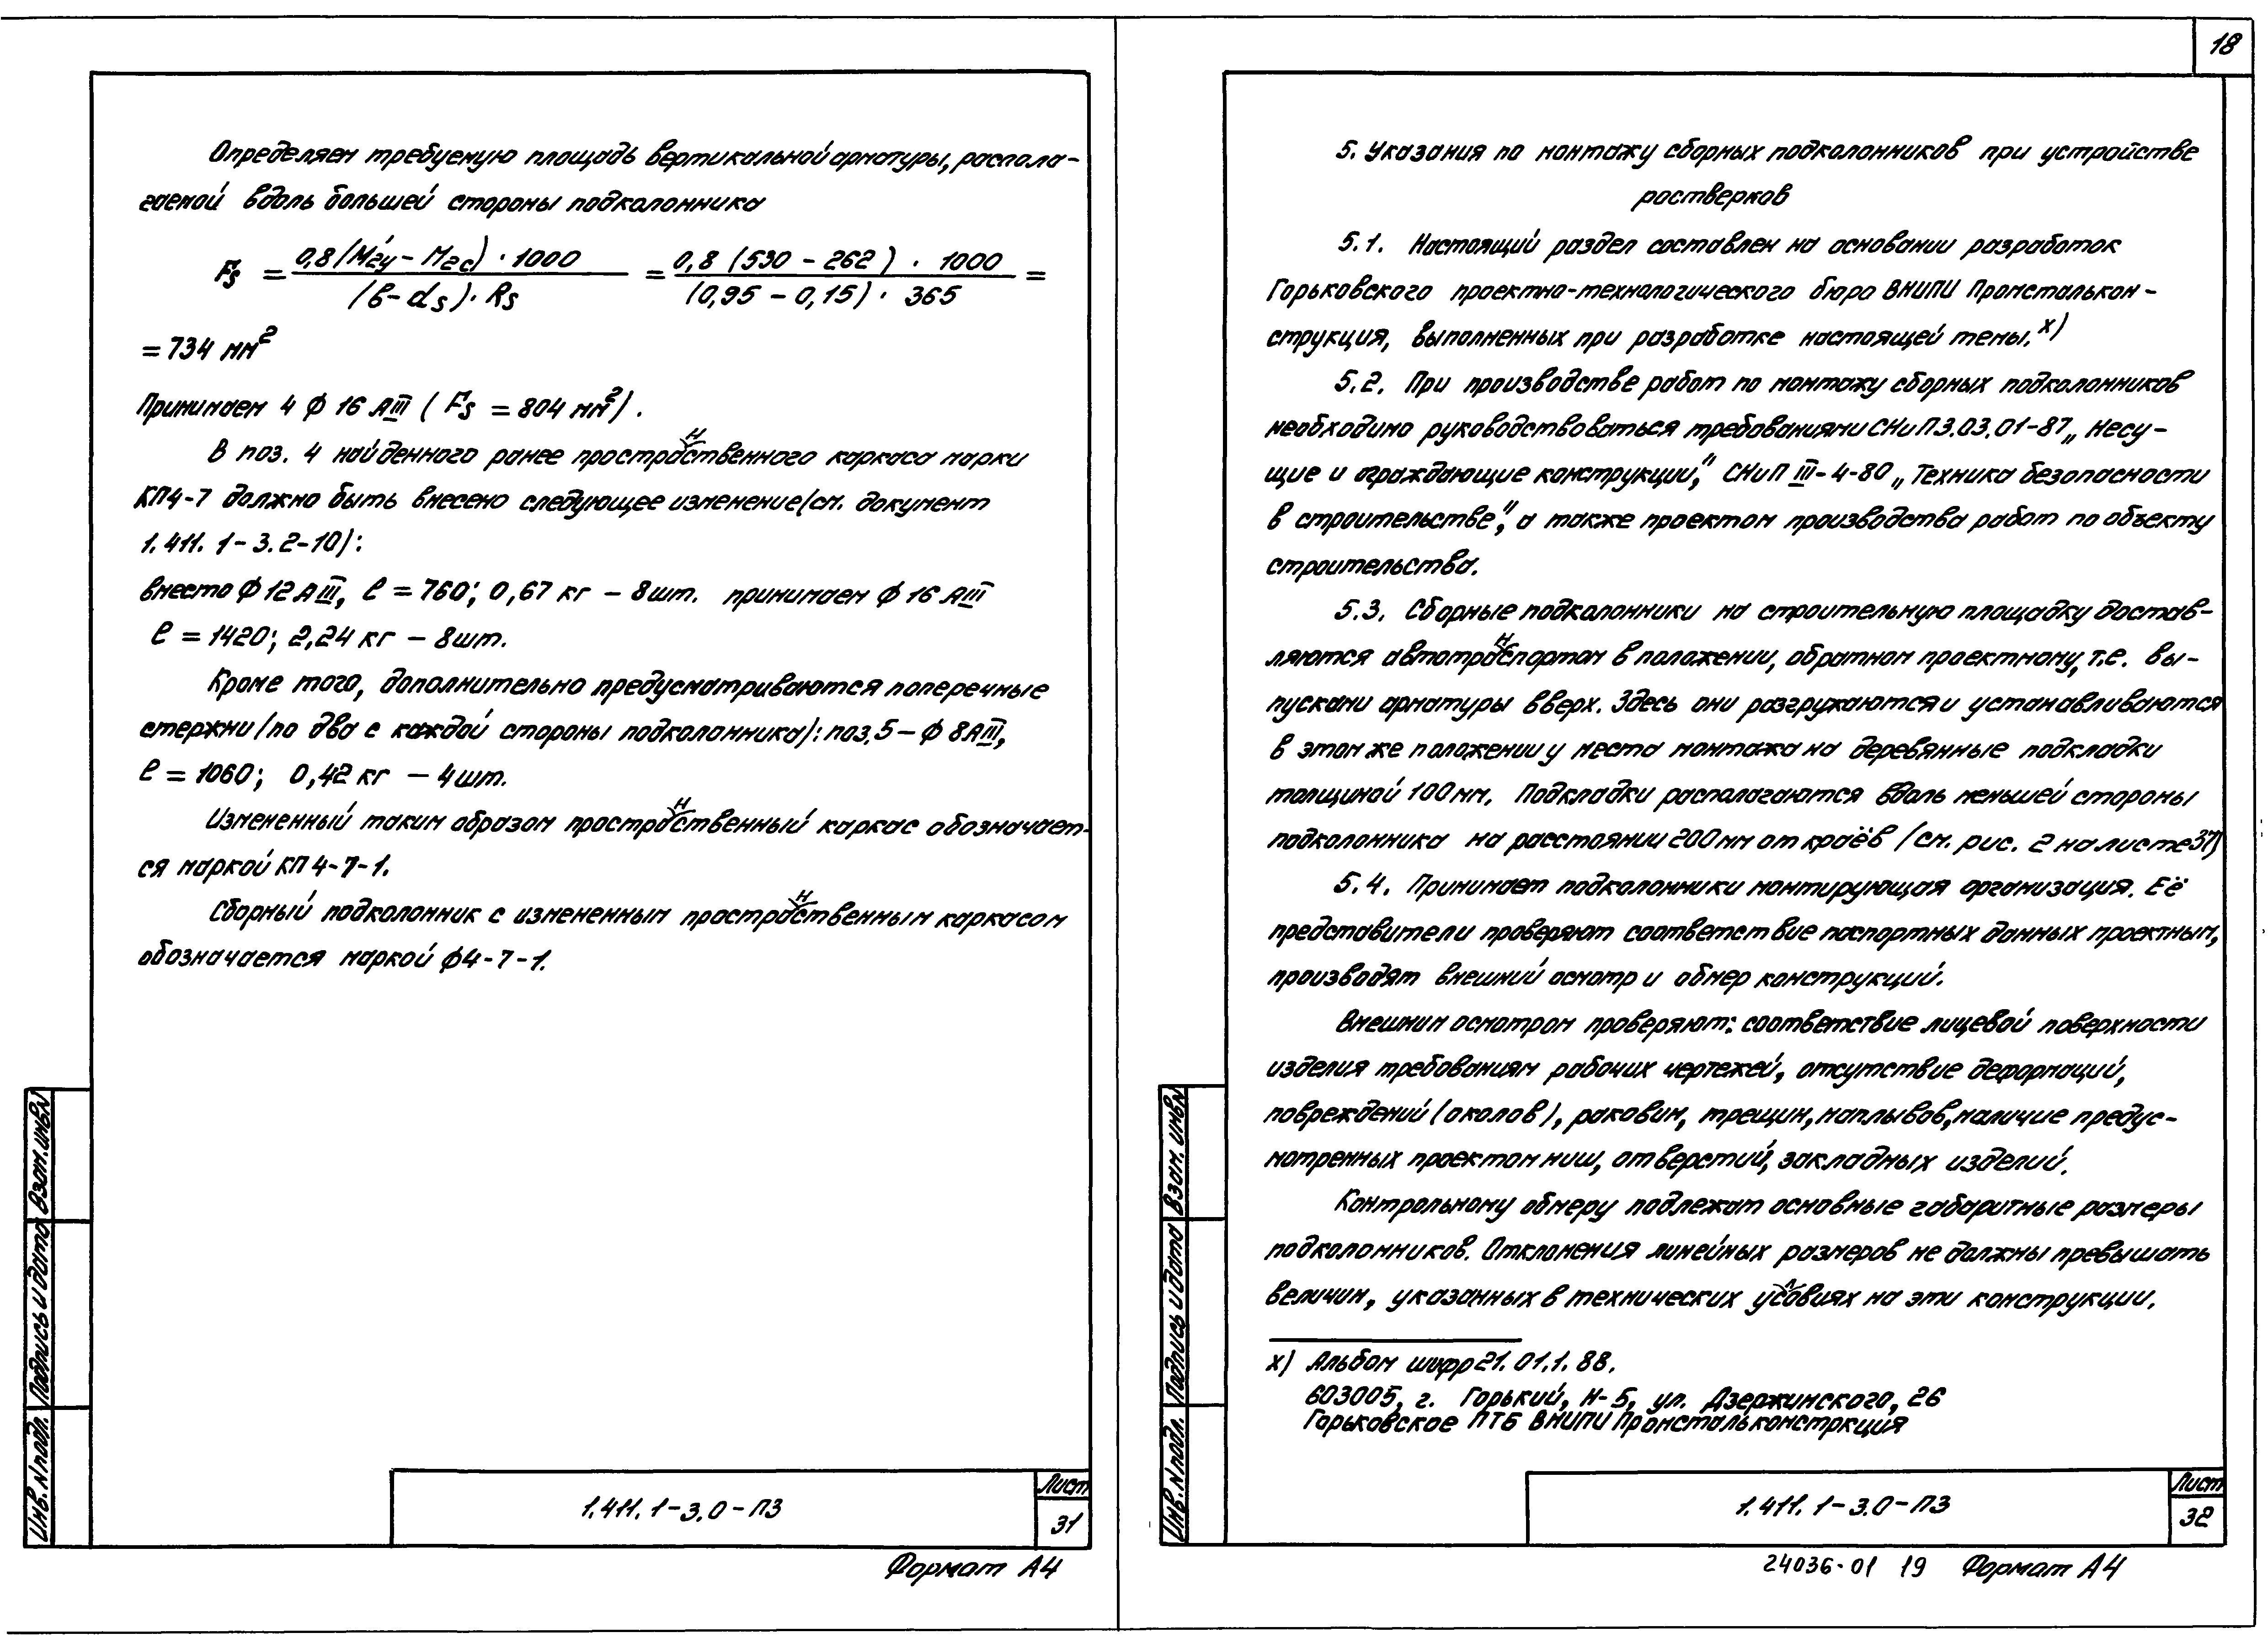 18
Определяем требуемую площадь вертикальной арматуры, распола-
гаемой вдоль большей стороны подколонника
Fs = 0,8 (M'2y – M2c) · 1000 / (b – ds) · Rs = 0,8 (530 – 262) · 1000 / (0,95 – 0,15) · 365 =
= 734 мм²
Принимаем 4 ф 16 АIII (Fs = 804 мм²).
В поз. 4 найденного ранее пространственного каркаса марки
КП4-7 должно быть внесено следующее изменение (см. документ
1.411.1-3.2-10):
вместо ф 12 АIII, ℓ = 760; 0,67 кг – 8 шт. принимаем ф 16 АIII
ℓ = 1420; 2,24 кг – 8 шт.
Кроме того, дополнительно предусматриваются поперечные
стержни (по два с каждой стороны подколонника): поз. 5 – ф 8АIII,
ℓ = 1060; 0,42 кг – 4 шт.
Измененный таким образом пространственный каркас обозначает-
ся маркой КП 4-7-1.
Сборный подколонник с измененным пространственным каркасом
обозначается маркой ф4-7-1.
Инв. N подл. Подпись и дата Взам. инв N
1.411.1-3.0-ПЗ
Лист
31
Формат А4
5. Указания по монтажу сборных подколонников при устройстве
ростверков
5.1. Настоящий раздел составлен на основании разработок
Горьковского проектно-технологического бюро ВНИПИ Промсталькон-
струкция, выполненных при разработке настоящей темы. х)
5.2. При производстве работ по монтажу сборных подколонников
необходимо руководствоваться требованиями СНиП 3.03.01-87 „Несу-
щие и ограждающие конструкции“, СНиП III-4-80 „Техника безопасности
в строительстве“, а также проектом производства работ по объекту
строительства.
5.3. Сборные подколонники на строительную площадку достав-
ляются автотранспортом в положении, обратном проектному, т.е. вы-
пусками арматуры вверх. Здесь они разгружаются и устанавливаются
в этом же положении у места монтажа на деревянные подкладки
толщиной 100 мм. Подкладки располагаются вдоль меньшей стороны
подколонника на расстоянии 200 мм от краёв (см. рис. 2 на листе 37)
5.4. Принимает подколонники монтирующая организация. Её
представители проверяют соответствие паспортных данных проектным,
производят внешний осмотр и обмер конструкций.
Внешним осмотром проверяют: соответствие лицевой поверхности
изделия требованиям рабочих чертежей, отсутствие деформаций,
повреждений (околов), раковин, трещин, наплывов, наличие предус-
мотренных проектом ниш, отверстий, закладных изделий.
Контрольному обмеру подлежат основные габаритные размеры
подколонников. Отклонения линейных размеров не должны превышать
величин, указанных в технических условиях на эти конструкции.
х) Альбом шифр 21.01.1.88.
603005, г. Горький, Н-5, ул. Дзержинского, 26
Горьковское ПТБ ВНИПИ Промстальконстркция
Инв. N подл. Подпись и дата Взам. инв N
1.411.1-3.0-ПЗ
Лист
32
24036-01 19 Формат А4